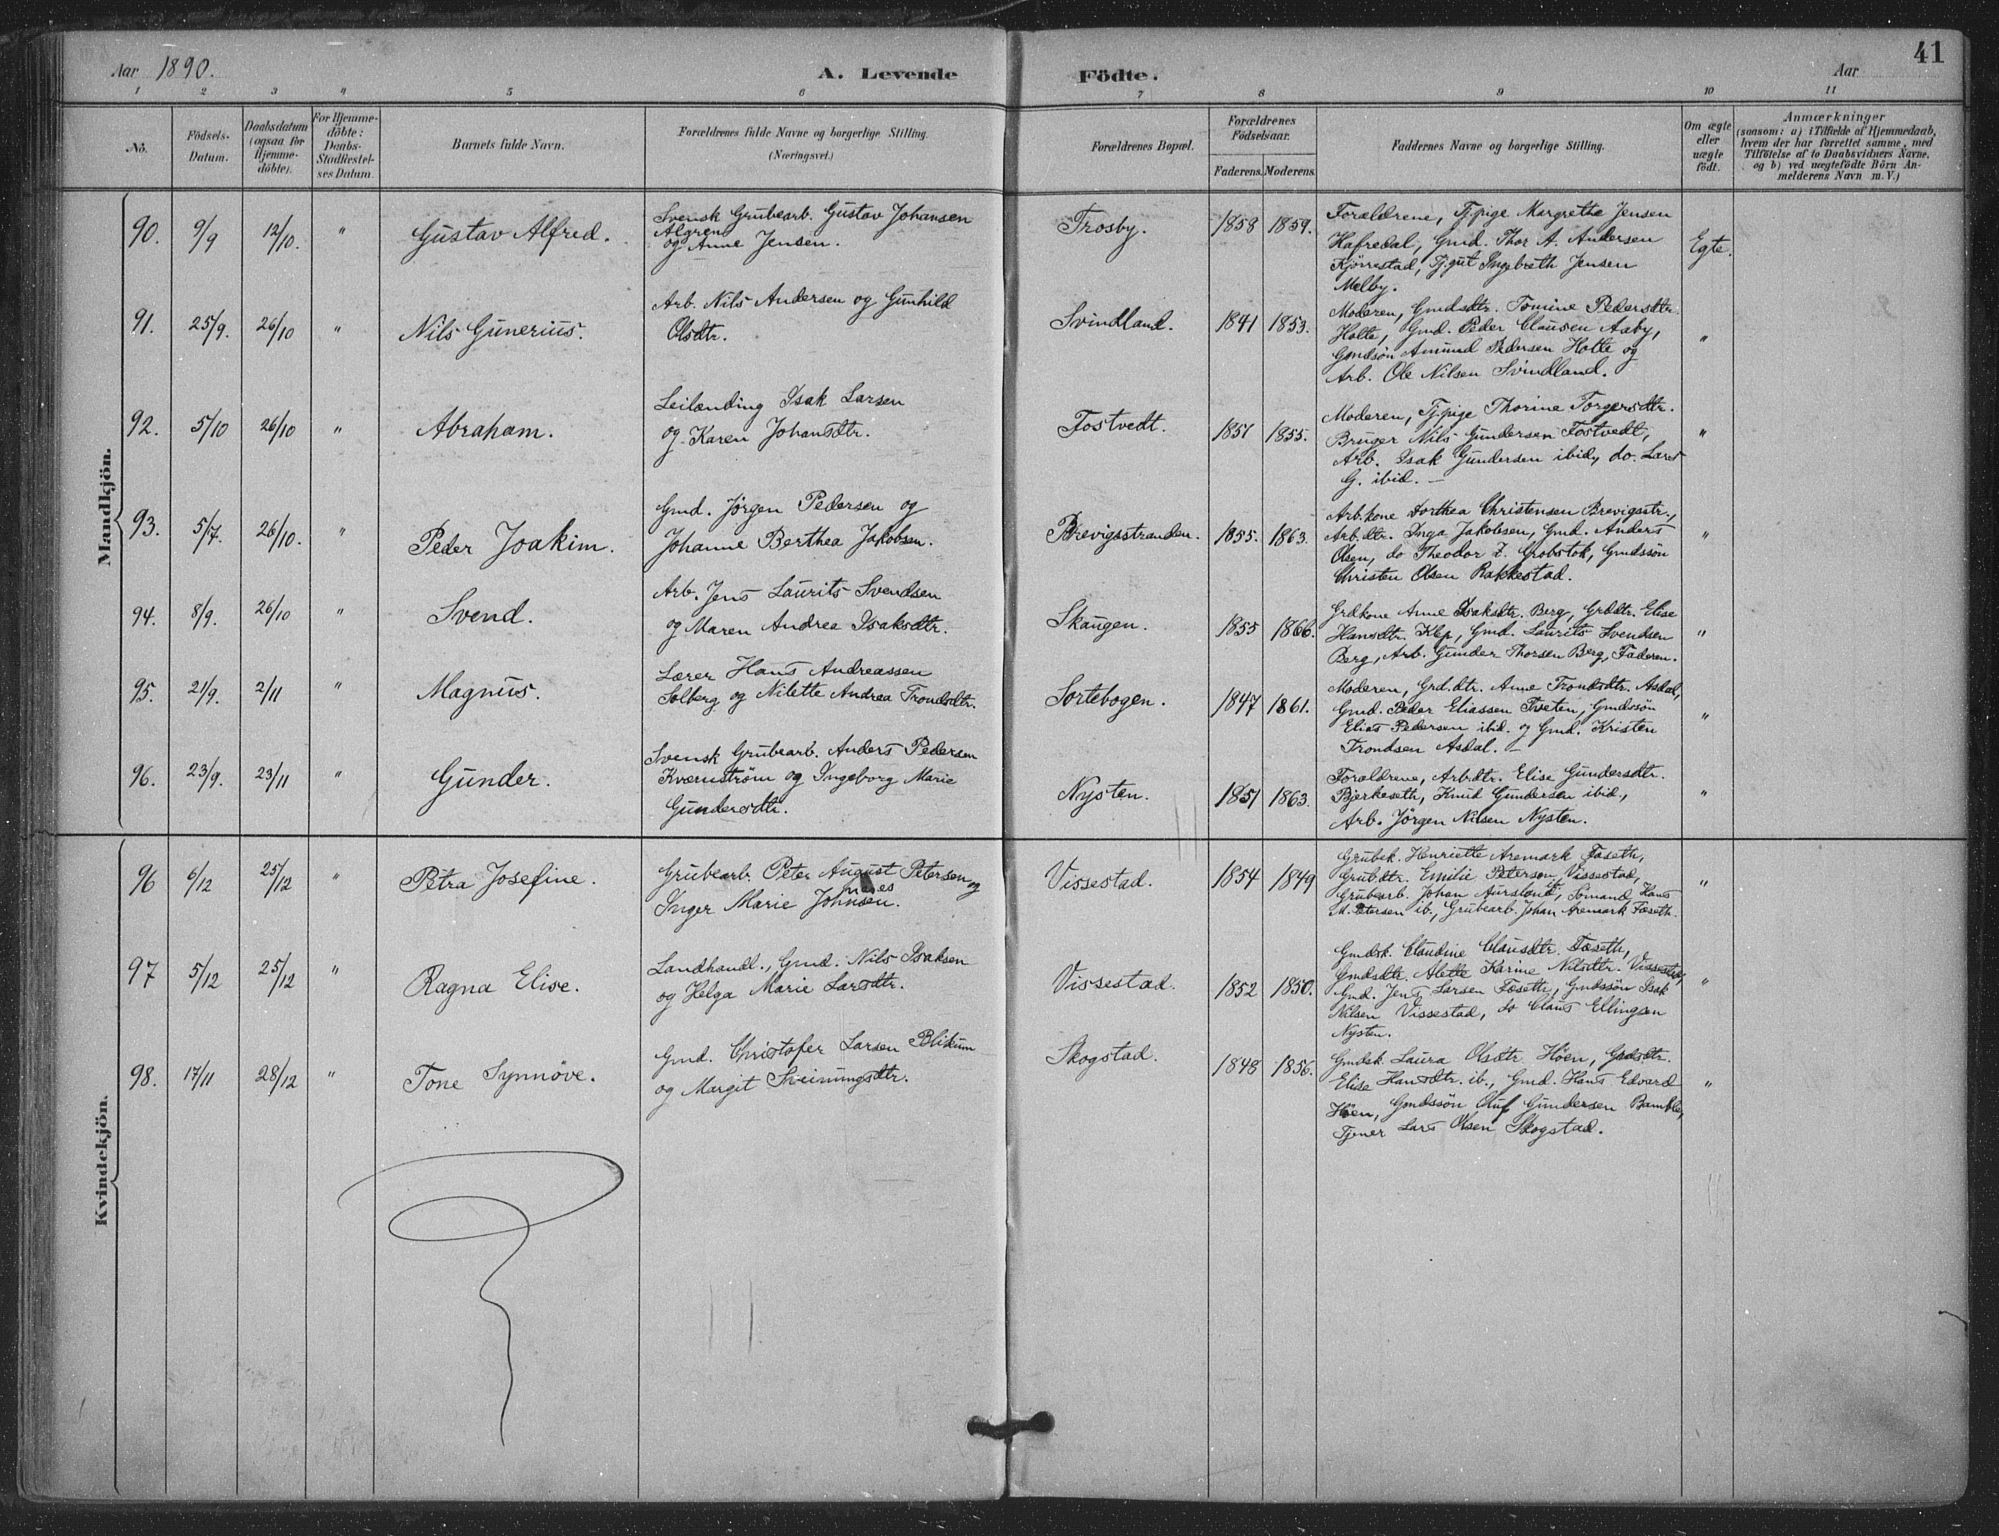 41
Aar 1890.
A. Levende Födte.
Aar
1 2 3 4 5 6 7 8 9 10 11
No.
Födsels-
Datum.
Daabsdatum
(ogsaa for
Hjemme-
döbte).
For Hjemme-
döbte:
Daabs-
Stadfæstel-
ses Datum.
Barnets fulde Navn.
Forældrenes fulde Navne og borgerlige Stilling.
(Næringsvei.)
Forældrenes Bopæl.
Forældrenes
Födselsaar.
Faderens. Moderens.
Faddernes Navne og borgerlige Stilling.
Om ægte
eller
uægte
födt.
Anmærkninger
(saasom: a) i Tilfælde af Hjemmedaab,
hvem der har forrettet samme, med
Tilföielse af to Daabsvidners Navne,
og b) ved uægtefödte Börn An-
melderens Navn m. V.)
Mandkjön.
90. 9/9 12/10. " Gustav Alfred.
Svensk Grubearb. Gustav Johansen
Algren
og Anne Jensen.
Trosby. 1858 1859.
Forældrene, Tj.pige Margrethe Jensen
Hafredal, Gmd. Thor A. Andersen
Kjörrestad, Tj.gut Ingebreth Jensen
Melby.
Egte.
91. 25/9. 26/10 " Nils Gunerius.
Arb. Nils Andersen og Gunhild
Olsdtr.
Svindland. 1841 1853.
Moderen, Gmdsdtr. Tomine Pedersdtr.
Holte, Gmd. Peder Clausen Aaby,
Gmdsön Amund Pedersen Holte og
Arb. Ole Nilsen Svindland.
"
92. 5/10 26/10 " Abraham.
Leilænding Isak Larsen
og Karen Johansdtr.
Fostvedt. 1857 1855.
Moderen, Tj.pige Thorine Torgersdtr.
Bruger Nils Gundersen Fostvedt,
Arb. Isak Gundersen ibid, do. Lars
G. ibid. —
"
93. 5/7. 26/10. " Peder Joakim.
Gmd. Jørgen Pedersen og
Johanne Berthea Jakobsen.
Brevigsstranden. 1855. 1863.
Arb.kone Dorthea Christensen Brevigsstr.,
Arb.dtr. Inga Jakobsen, Gmd. Anders
Olsen, do Theodor Z. Grobstok, Gmdssön
Christen Olsen Rakkestad.
"
94. 8/9. 26/10 " Svend.
Arb. Jens Laurits Svendsen
og Maren Andrea Isaksdtr.
Skaugen. 1855 1866.
Grdkone Anne Isaksdtr. Berg, Grdtr. Elise
Hansdtr. Klep, Gmd. Laurits Svendsen
Berg, Arb. Gunder Thorsen Berg, Faderen.
"
95. 21/9. 2/11 " Magnus.
Lærer Hans Andreassen
Solberg og Nilette Andrea Trondsdtr.
Sortebogen. 1847 1861.
Moderen, Grd.dtr. Anne Trondsdtr. Asdal,
Gmd. Peder Eliassen Tveten, Gmdssön
Elias Pedersen ibid. og Gmd. Kristen
Trondsen Asdal. —
"
96. 23/9. 23/11 " Gunder.
Svensk Grubearb. Anders Pedersen
Kværnström og Ingeborg Marie
Gundersdtr.
Nysten. 1851 1863.
Forældrene, Arb.dtr. Elise Gundersdtr.
Bjerkeseth, Knud Gundersen ibid.,
Arb. Jörgen Nilsen Nysten.
"
Kvindekjön.
96 6/12 25/12 " Petra Josefine.
Grubearb. Peter August Petersen og
Inger Marie Johnsen.
Vissestad. 1854 1849
Grubek. Henriette Aremark Fæseth,
Grub.dtr. Emilie Peterson, Vissestad,
Grubearb. Johan Aursland, Sömand Hans
M. Petersen ib., Grubearb. Johan Aremark Fæseth.
"
97 5/12 25/12 " Ragna Elise.
Landhandl., Gmd. Nils Isaksen
og Helga Marie Larsdtr.
Vissestad. 1852 1850.
Gmdsk. Claudine Clausdtr. Fæseth,
Gmdsdtr. Alette Karine Nilsdtr. Vissestad,
Gmd. Jens Larsen Fæseth, Gmdssön Isak
Nilsen Vissestad, do Claus Ellingsen
Nysten.
"
98. 17/11 28/12 " Tone Synnöve.
Gmd. Christofer Larsen Blikum
og Margit Sveinungsdtr.
Skogstad. 1848 1856.
Gmdsk. Laura Olsdtr. Höen, Gmdsdtr.
Elise Hansdtr. ib., Gmd. Hans Edvard
Höen, Gmdssön Oluf Gundersen Bamble,
Tjener Lars Olsen Skogstad.
"